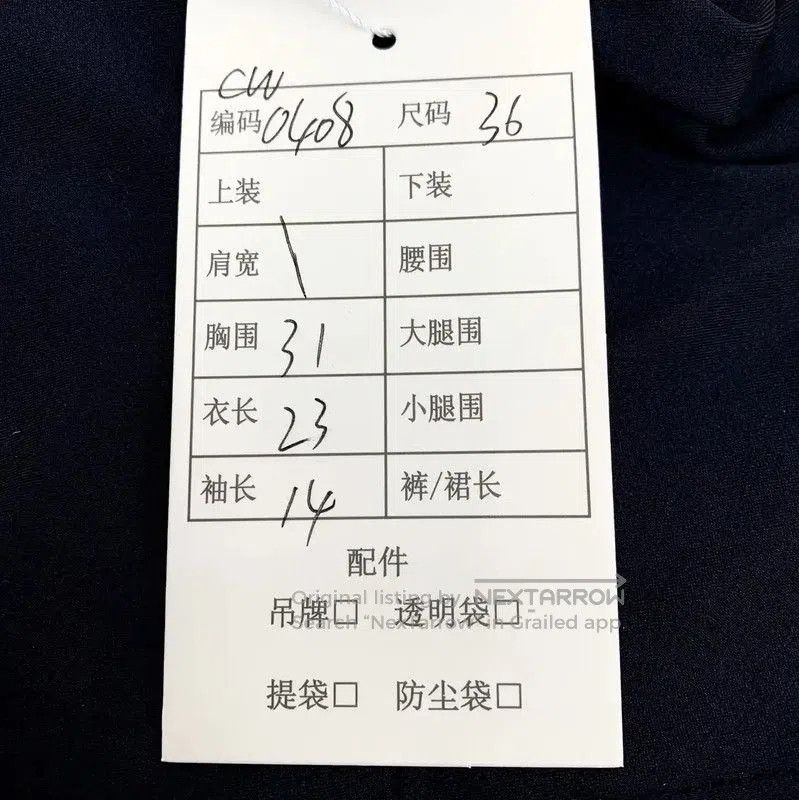 CW
编码 0408 尺码 36
上装 下装
肩宽 \ 腰围
胸围 31 大腿围
衣长 23 小腿围
袖长 14 裤/裙长
配件
Original listing by NEXTARROW
吊牌□ 透明袋□
Search "NexTarrow" in Grailed app
提袋□ 防尘袋□